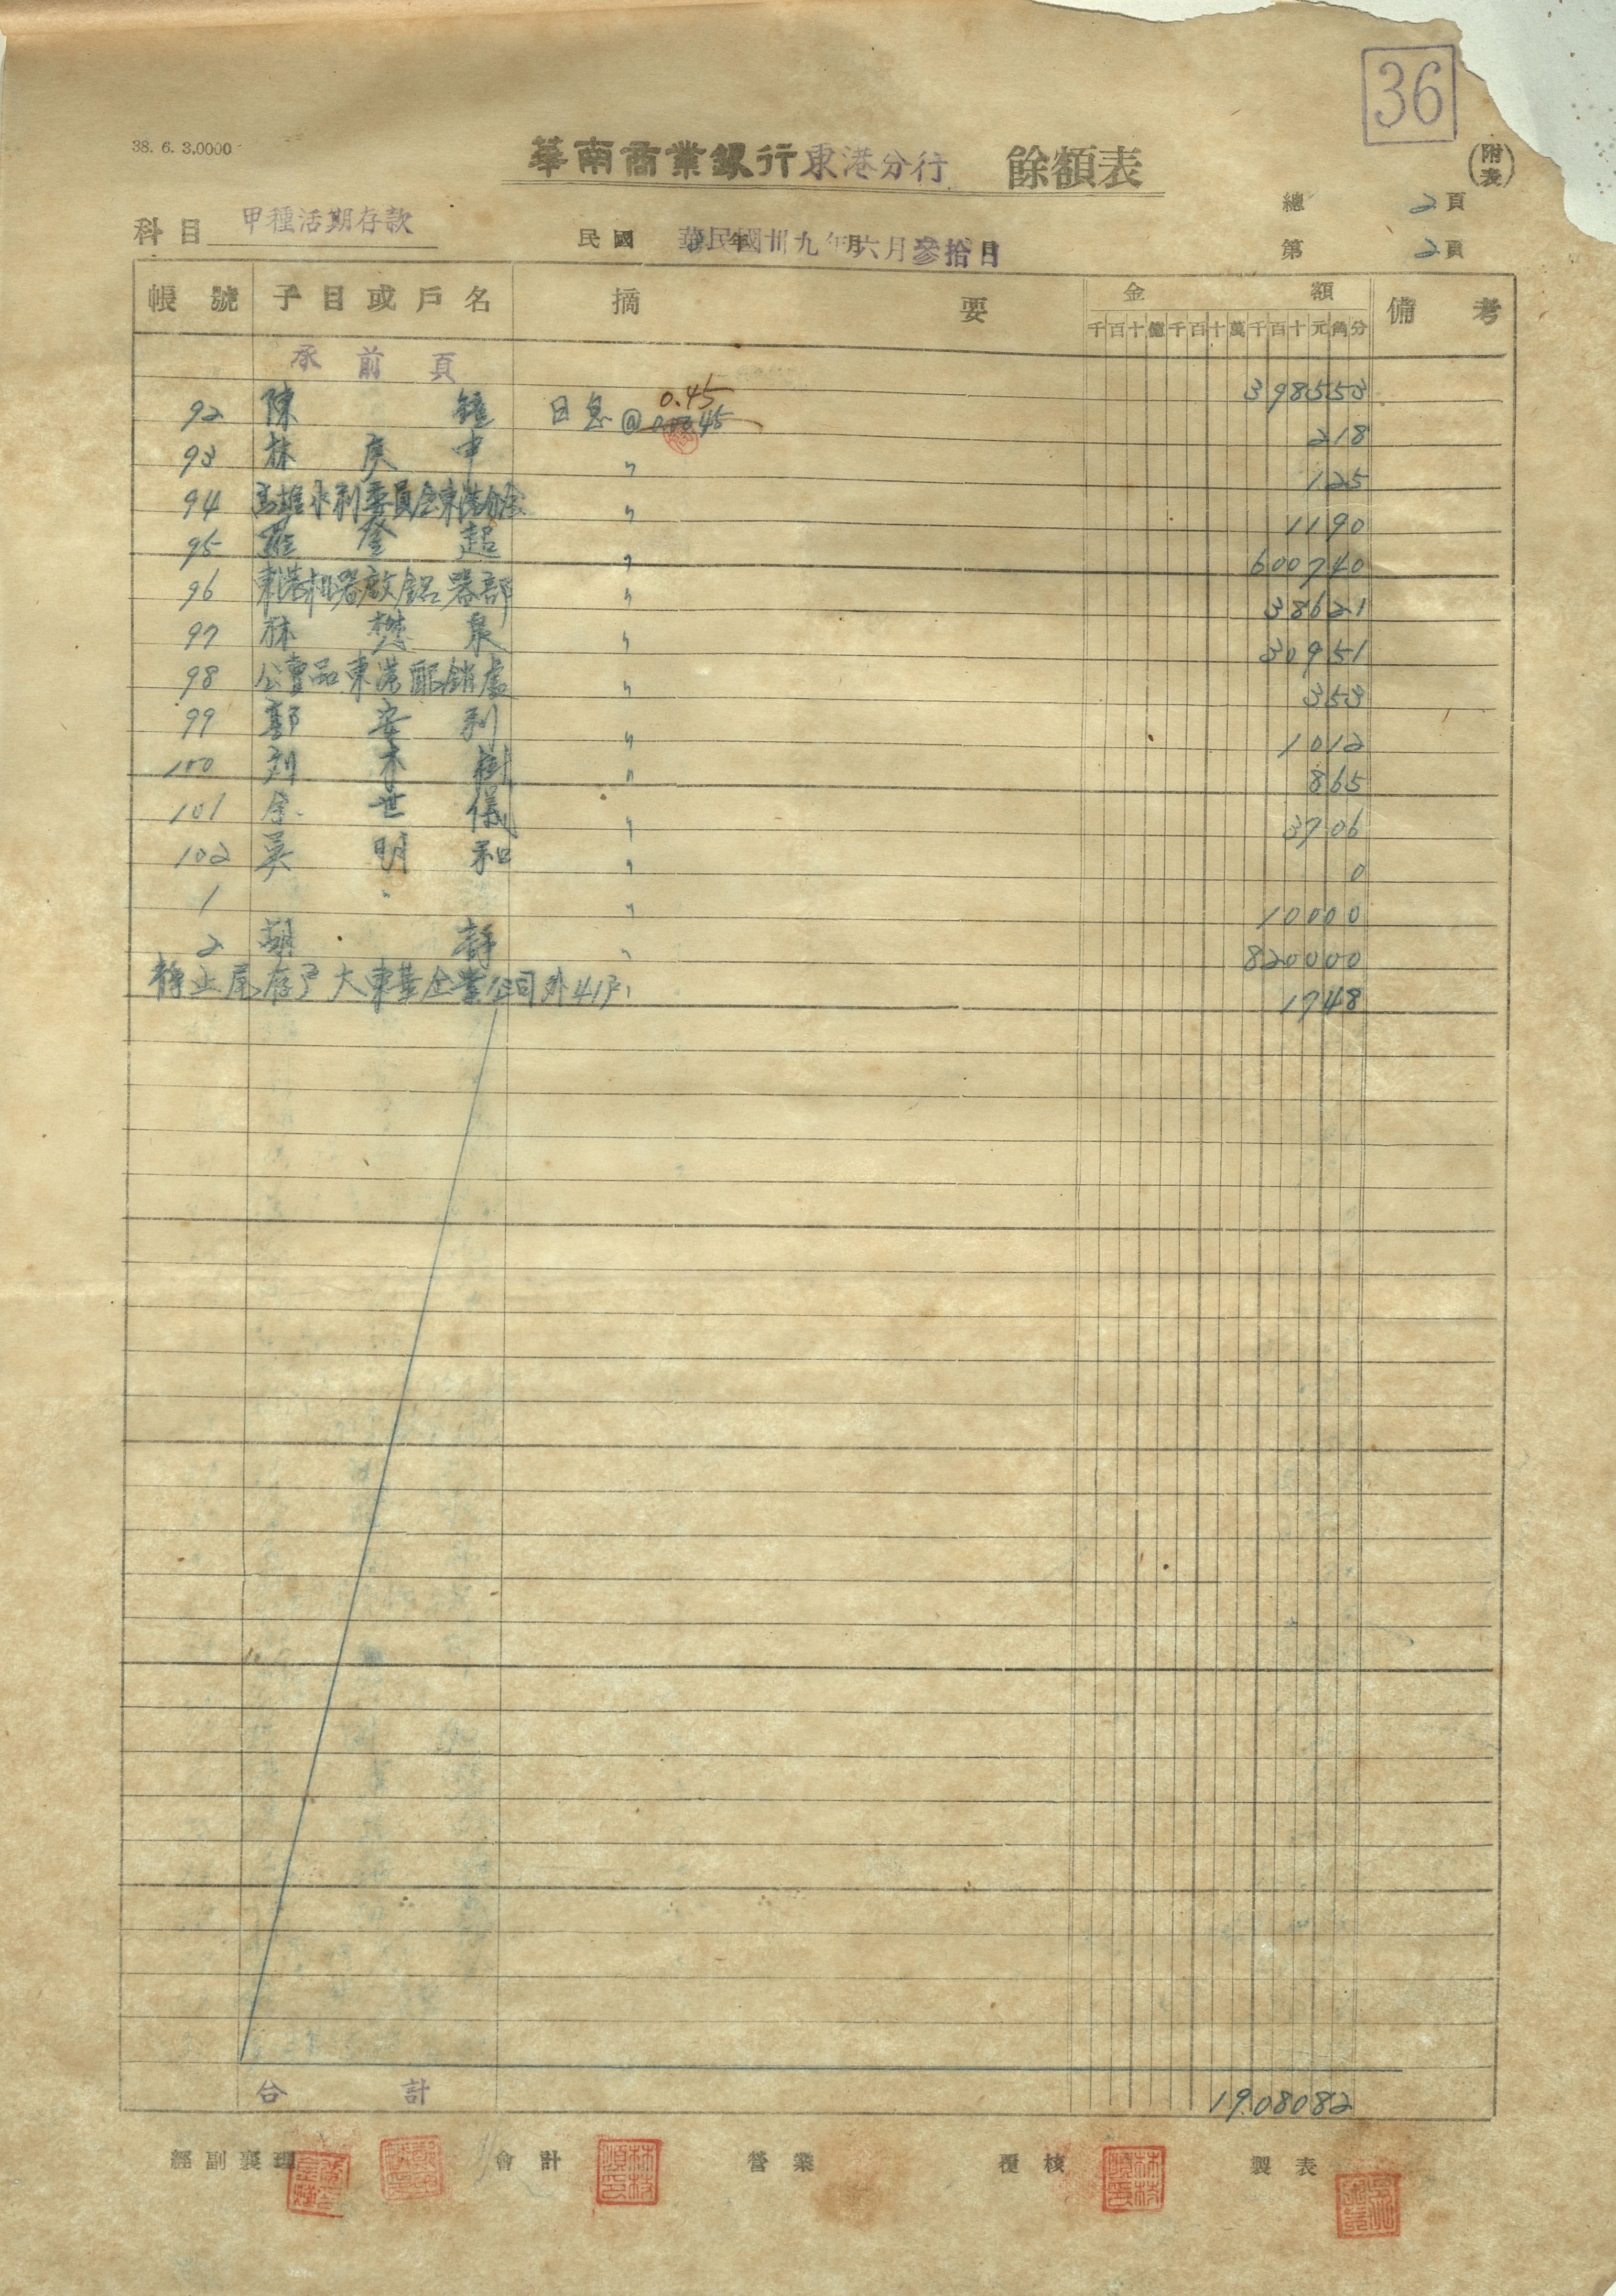 36
38. 6. 3.0000
華南商業銀行東港分行 餘額表 (附表)
總 2 頁
科目 甲種活期存款
民國 年 月 日 華民國卅九年六月參拾日
第 2 頁
帳號 子目或戶名 摘要 金額 備考
千百十億千百十萬千百十元角分
承前頁 398553
92 陳 鐘 日息@ 0.0045 0.45 218
93 林庚申 〃 125
94 高雄水利委員會東港分會 〃 1190
95 羅奎起 〃 600740
96 東港机器廠鋁器部 〃 38621
97 林懋泉 〃 30951
98 公賣品東港配銷處 〃 353
99 郭安利 〃 1012
100 刘木樹 〃 865
101 余世儀 〃 3706
102 吳明和 〃 0
1 〃 〃 10000
2 胡 靜 〃 820000
靜止尾存戶大東華企業公司外41戶 1748
合計 1908082
經副襄理 會計 營業 覆核 製表